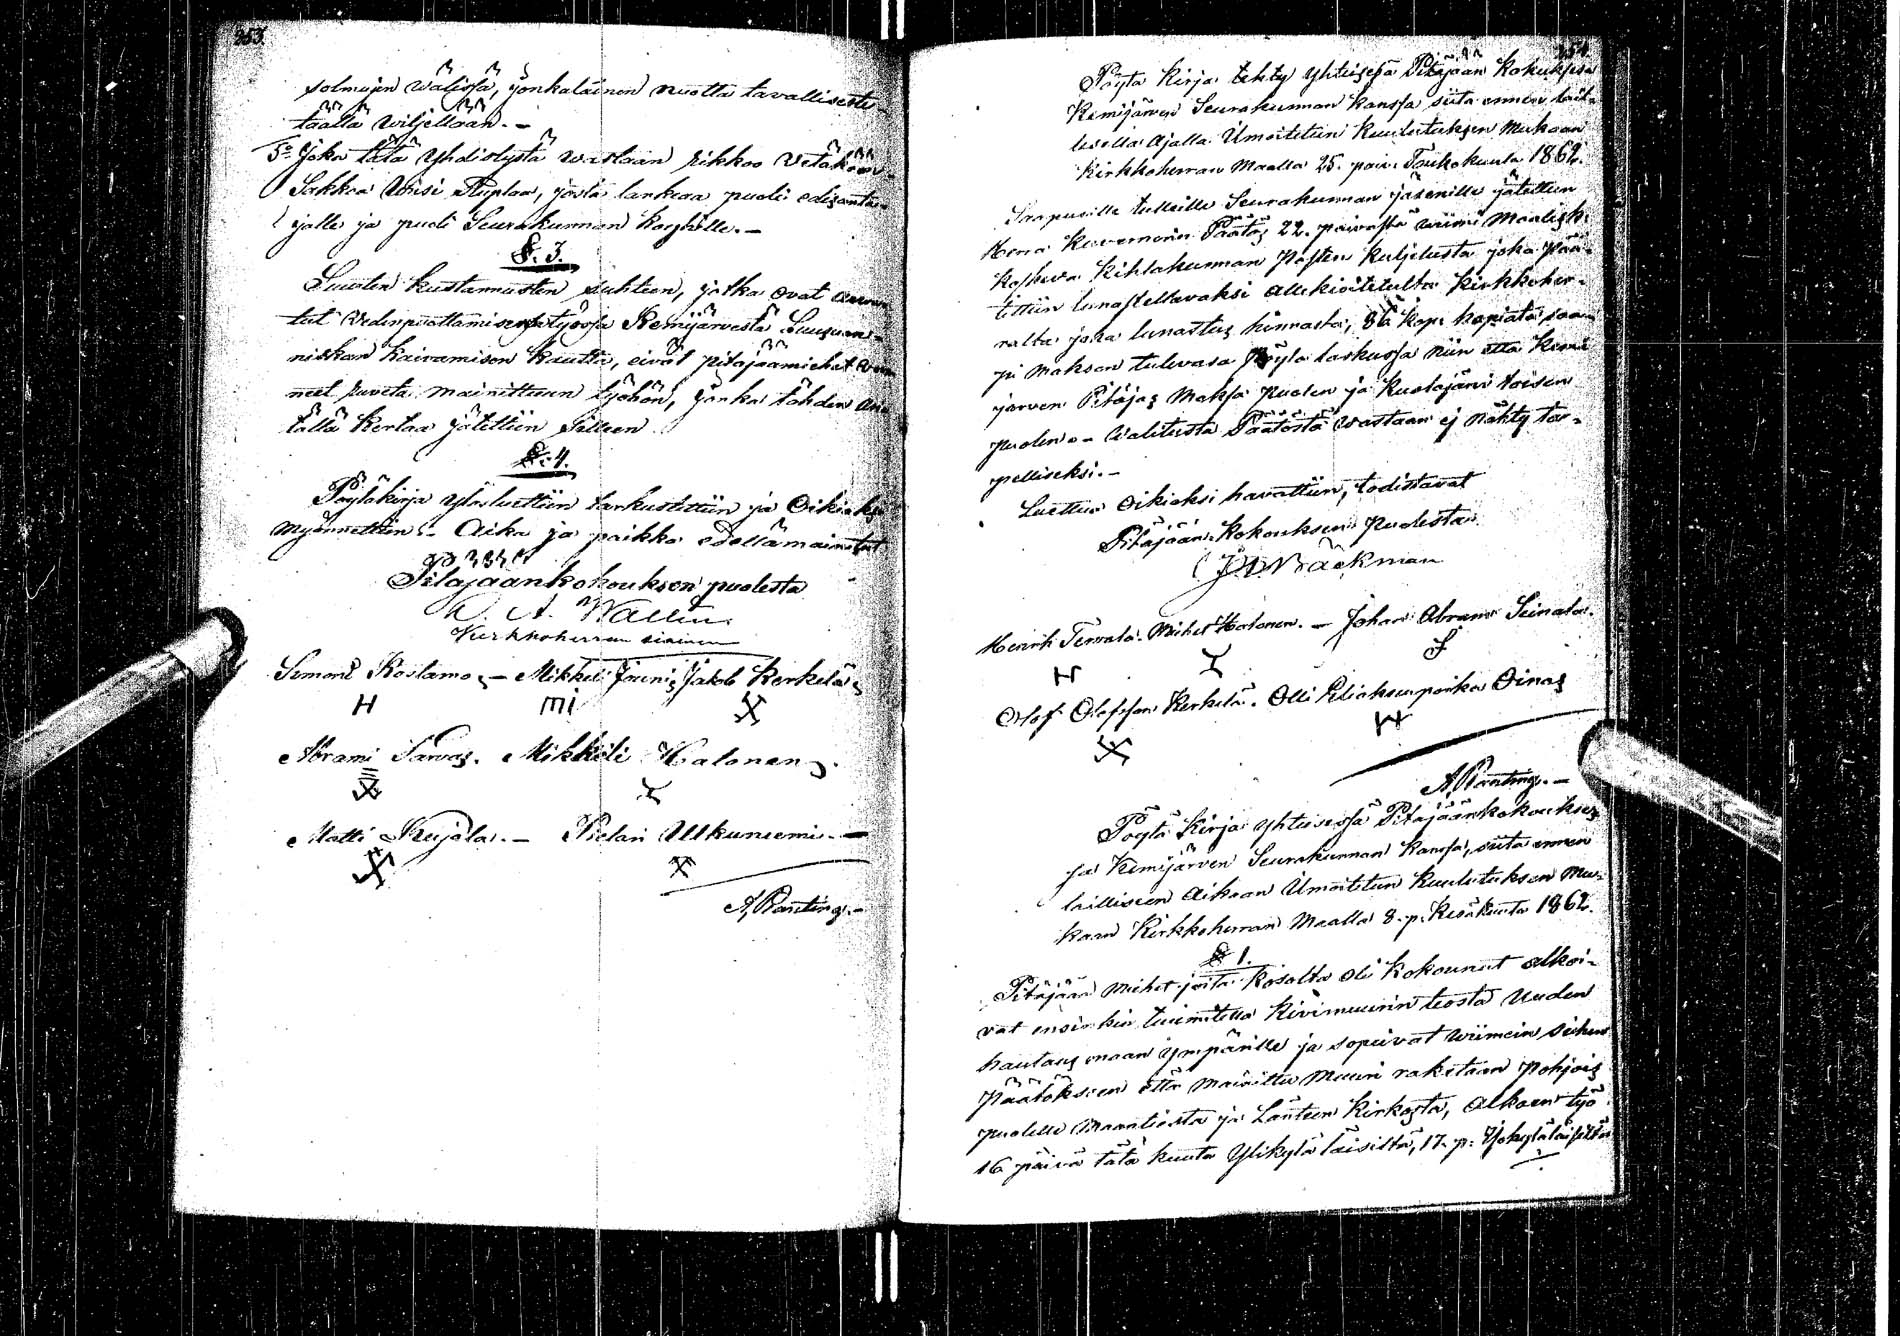 253.
solmujen wälissä, jonkalainen nuotta tavallisesti
täällä wiljellään. —
5o Joka tätä Yhdistystä wastaan rikkoo vetäköön
Sakkoa Wiisi Ruplaa, josta lankeaa puoli edisanta-
jalle ja puoli Seurakunnan Kassalle. —
§. 3.
Suurten kustannusten suhteen, jotka ovat
tut Vedenpuottamisessa työssä Kemijärvestä Luusuan-
niskan kaivamisen kautta, eivät pitäjäämiehet
neet ruveta mainittuun työhön, jonka tähden
tällä kertaa jätettiin silleen
§. 4.
Pöytäkirja ylösluettiin tarkustettiin ja Oikiaksi
myönnettiin. Aika ja paikka edellämainitut
Pitäjäänkokouksen puolesta
A. Wallin
Kirkkoherran siainen
Simoni Kostamo, — Mikkeli Jouni, Jakob Kerkelä,
H mi
Abrami Sarvas. Mikkeli Halonen,
Matti Kujala. — Pietari Ulkuniemi. —
A. Planting. —
254
Pöytä Kirja tehty Yhteisessä Pitäjään Kokouksessa
Kemijärven Seurakunnan kanssa siitä ennen lail-
lisella Ajalla Ilmoitetuin Kuulutuksen Mukaan
Kirkkoherran Maalla 25. päiv. Toukokuuta 1862.
Saapusille tulleille Seurakunnan jäsenille jätettiin
Herra Kuvernörin Päätös 22. päivästä viime Maalisk:
koskeva Kihlakunnan Postin kuljetusta joka Pää-
tettiin lunastettavaksi allekirjoitetulta Kirkkoher-
ralta joka lunastus hinnasta, 86 kop: hopiata saa-
pi Makson tulevasa Pöytä laskussa niin että Kemi
järven Pitäjäs Maksa Puolen ja Kuolajärvi toisen
puolen. — Valitusta Päätöstä vastaan ej Nähty tar-
pelliseksi. —
Luettu Oikiaksi havaittiin, todistavat
Pitäjään Kokouksen Puolesta
Bäckman
Henrik Tervala. Mikel Halonen. — Johan Abram Seinala.
Olof Olofsson Kerkelä. Olli Eliaksenpoika Oinas
A. Planting. —
Pöytä Kirja Yhteisessä Pitäjäänkokoukses
sa Kemijärven Seurakunnan kanssa, siitä ennen
lailliseen Aikaan Ilmoitetun Kuulutuksen Mu-
kaan Kirkkoherran Maalla 8. p. Kesäkuuta 1862.
§ 1.
Pitäjään Miehet joita Kosolta oli Kokounut alkoi-
vat ensin kin tuumitella Kivimuurin teosta Uuden
hautausmaan ympärille ja sopeivat wiimein siihen
Päätökseen että Mainittu Muuri raketaan Pohjois
puolelle Maantiestä ja Länteen Kirkosta, Alkaen työ
16 päivä tätä kuuta Ylikylä läisiltä, 17. p: Isokylä läisiltä